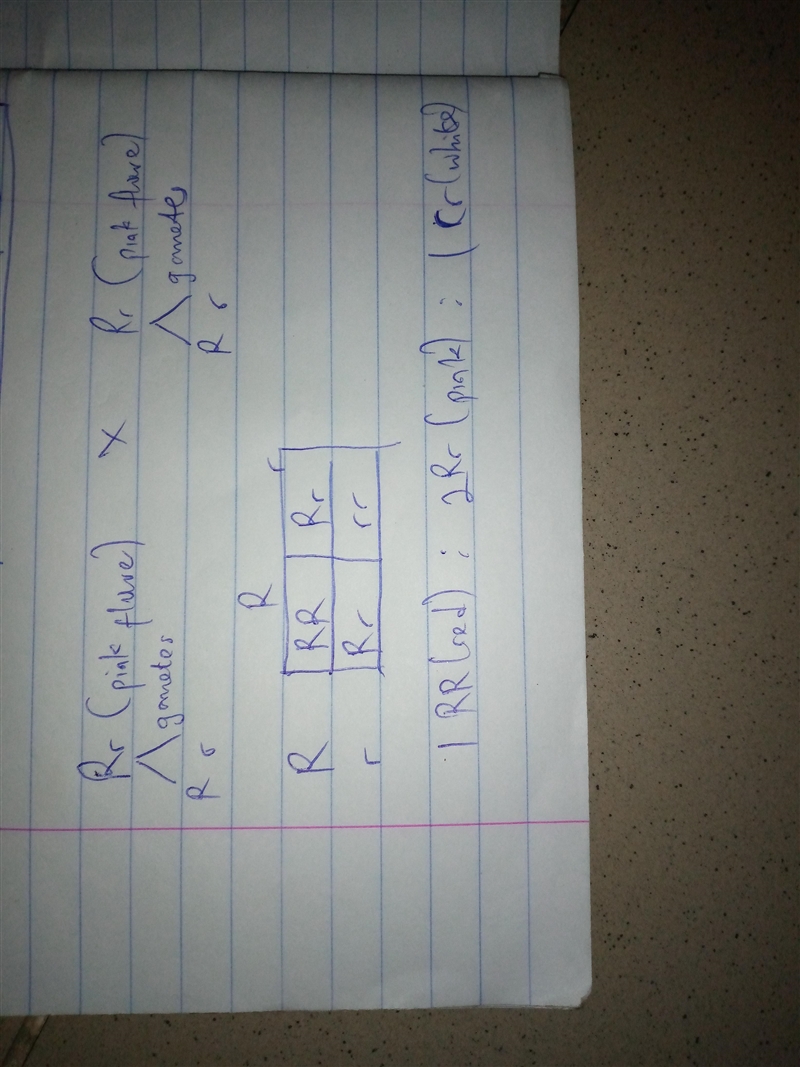 Rr (pink fluwe) x Rr (pink fluwe)
gametes gametes
R r R r
R r
R RR Rr
r Rr rr
1 RR (red) : 2Rr (pink) : 1 rr (white)